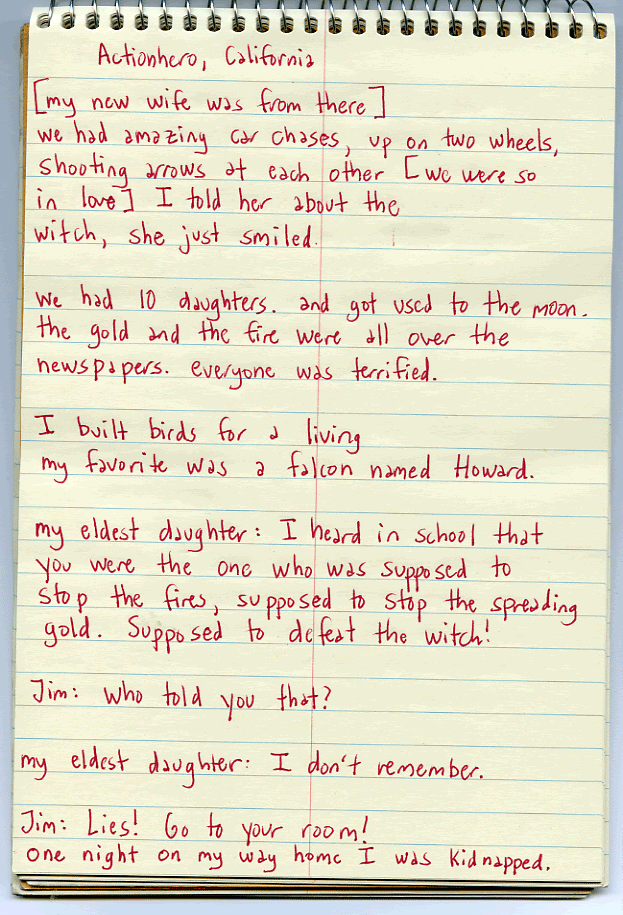 Actionhero, California
[my new wife was from there]
we had amazing car chases, up on two wheels,
shooting arrows at each other [we were so
in love] I told her about the
witch, she just smiled.
we had 10 daughters. and got used to the moon.
the gold and the fire were all over the
newspapers. everyone was terrified.
I built birds for a living
my favorite was a falcon named Howard.
my eldest daughter: I heard in school that
you were the one who was supposed to
stop the fires, supposed to stop the spreading
gold. Supposed to defeat the witch!
Jim: Who told you that?
my eldest daughter: I don't remember.
Jim: Lies! Go to your room!
one night on my way home I was kidnapped.